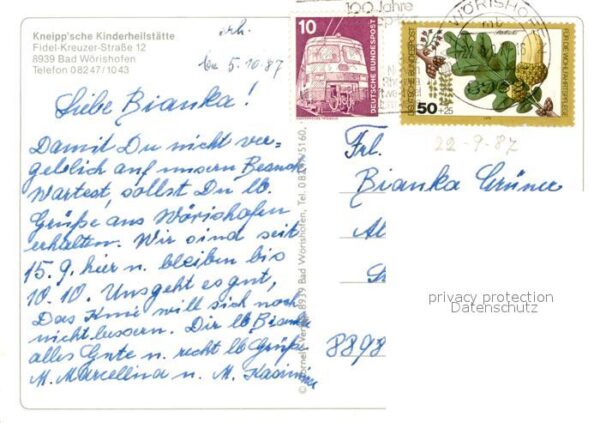 Kneipp'sche Kinderheilstätte
Fidel-Kreuzer-Straße 12
8939 Bad Wörishofen
Telefon 08247/1043
erh.
5.10.87
Liebe Bianka!
Damit Du nicht ver-
geblich auf unsern Besuch
Wartest, sollst Du lb
Grüße aus Wörishofen
erhalten. Wir sind seit
15.9. hier n. bleiben bis
10.10. Uns geht es gut,
Das Knie will sich noch
nicht bessern. Dir lb Bianka
alles Gute n. recht lb Grüße
M. Marcellina n. M.
8939 Bad Wörishofen, Tel. 08247/5160,
10
DEUTSCHE BUNDESPOST
100 Jahre
WÖRISHOFEN
DEUTSCHE BUNDESPOST
50+25
FÜR DIE WOHLFAHRTSPFLEGE
22-9-87
Frl.
Bianka Grüner
Al
St
8898
privacy protection
Datenschutz